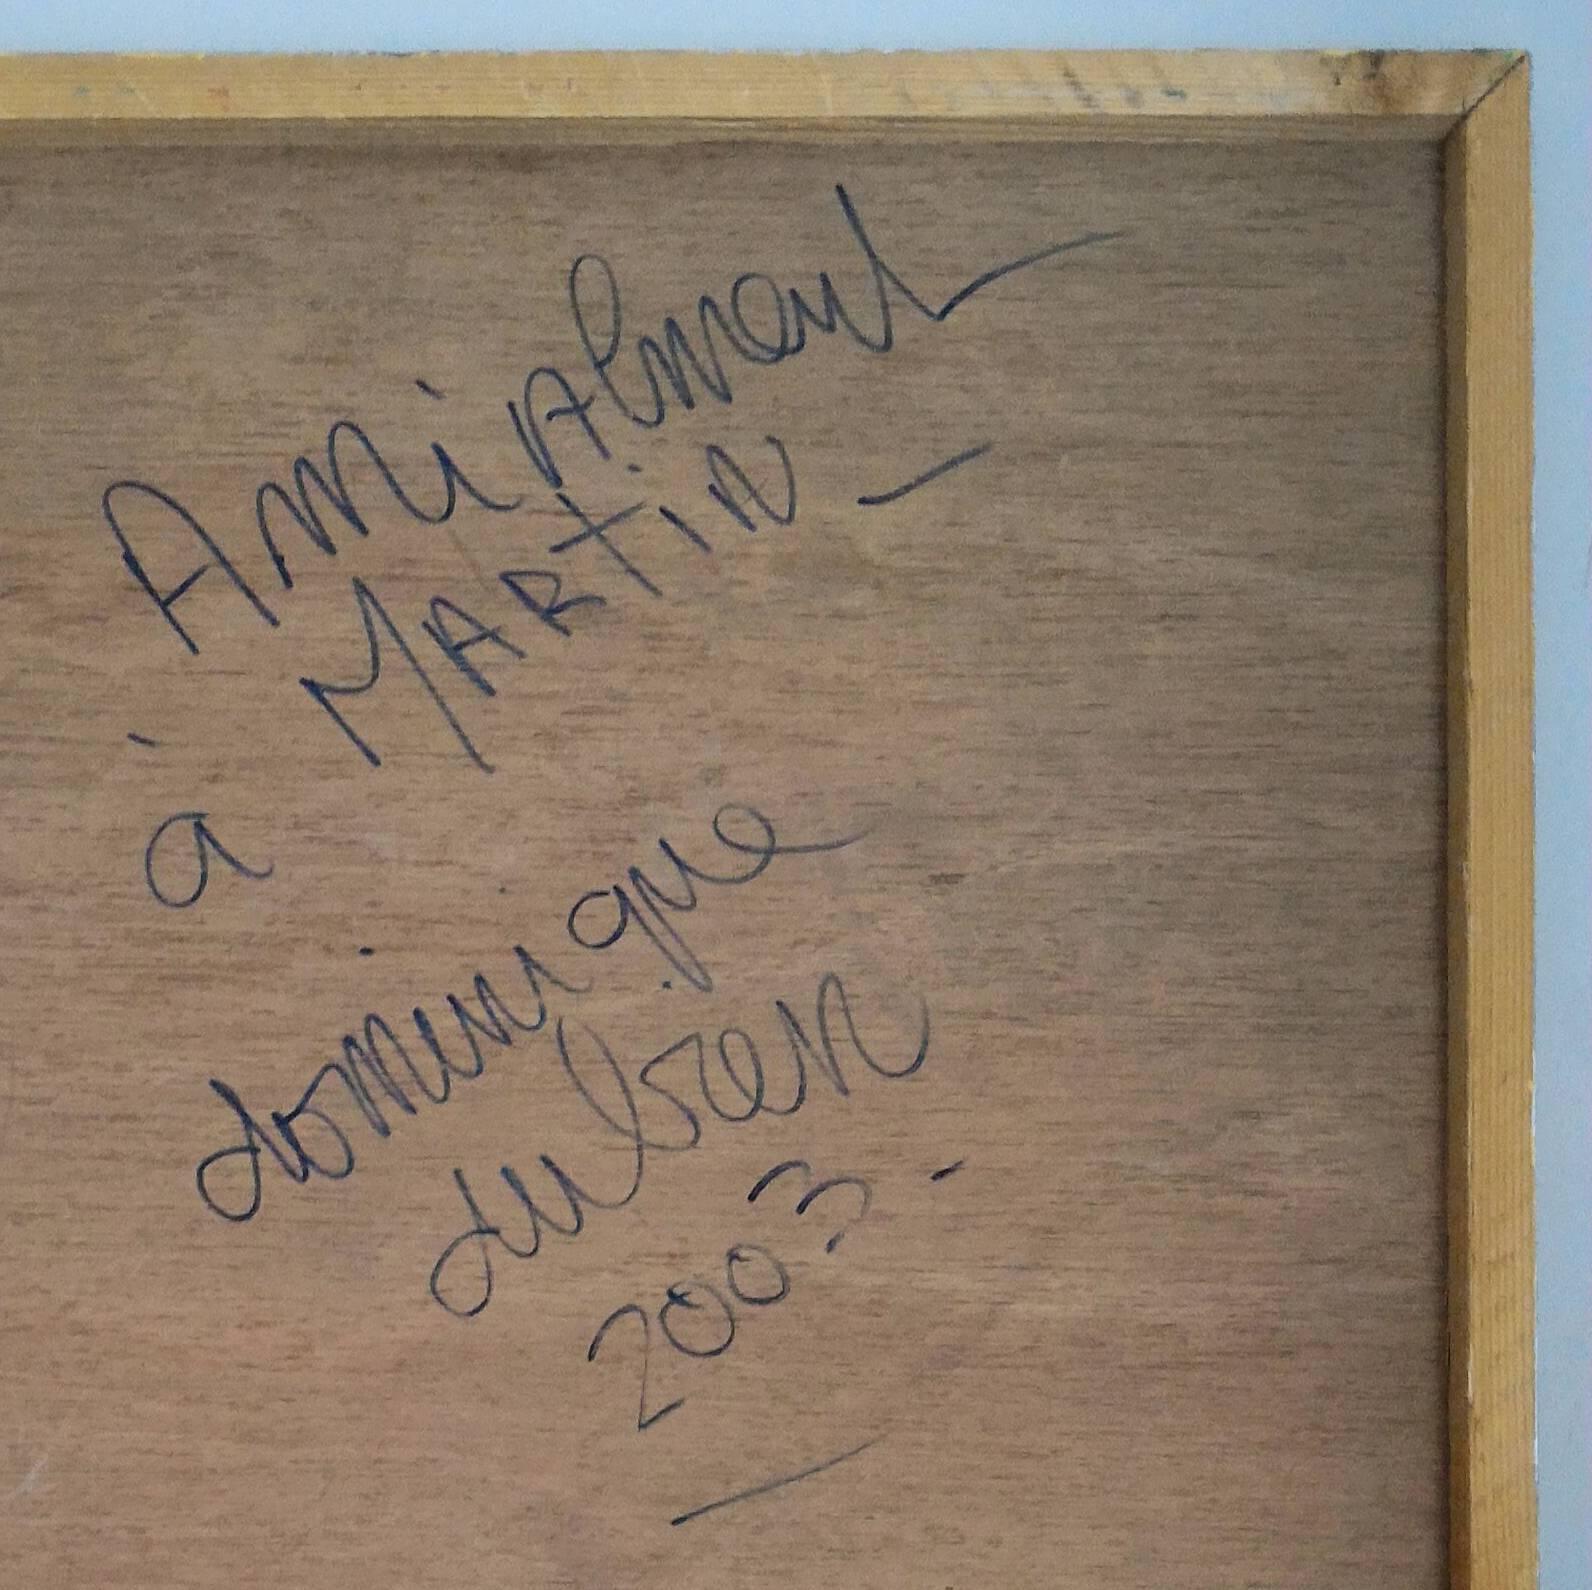 Amicalement
à MARTIN -
dominique
dulsen
2003 -